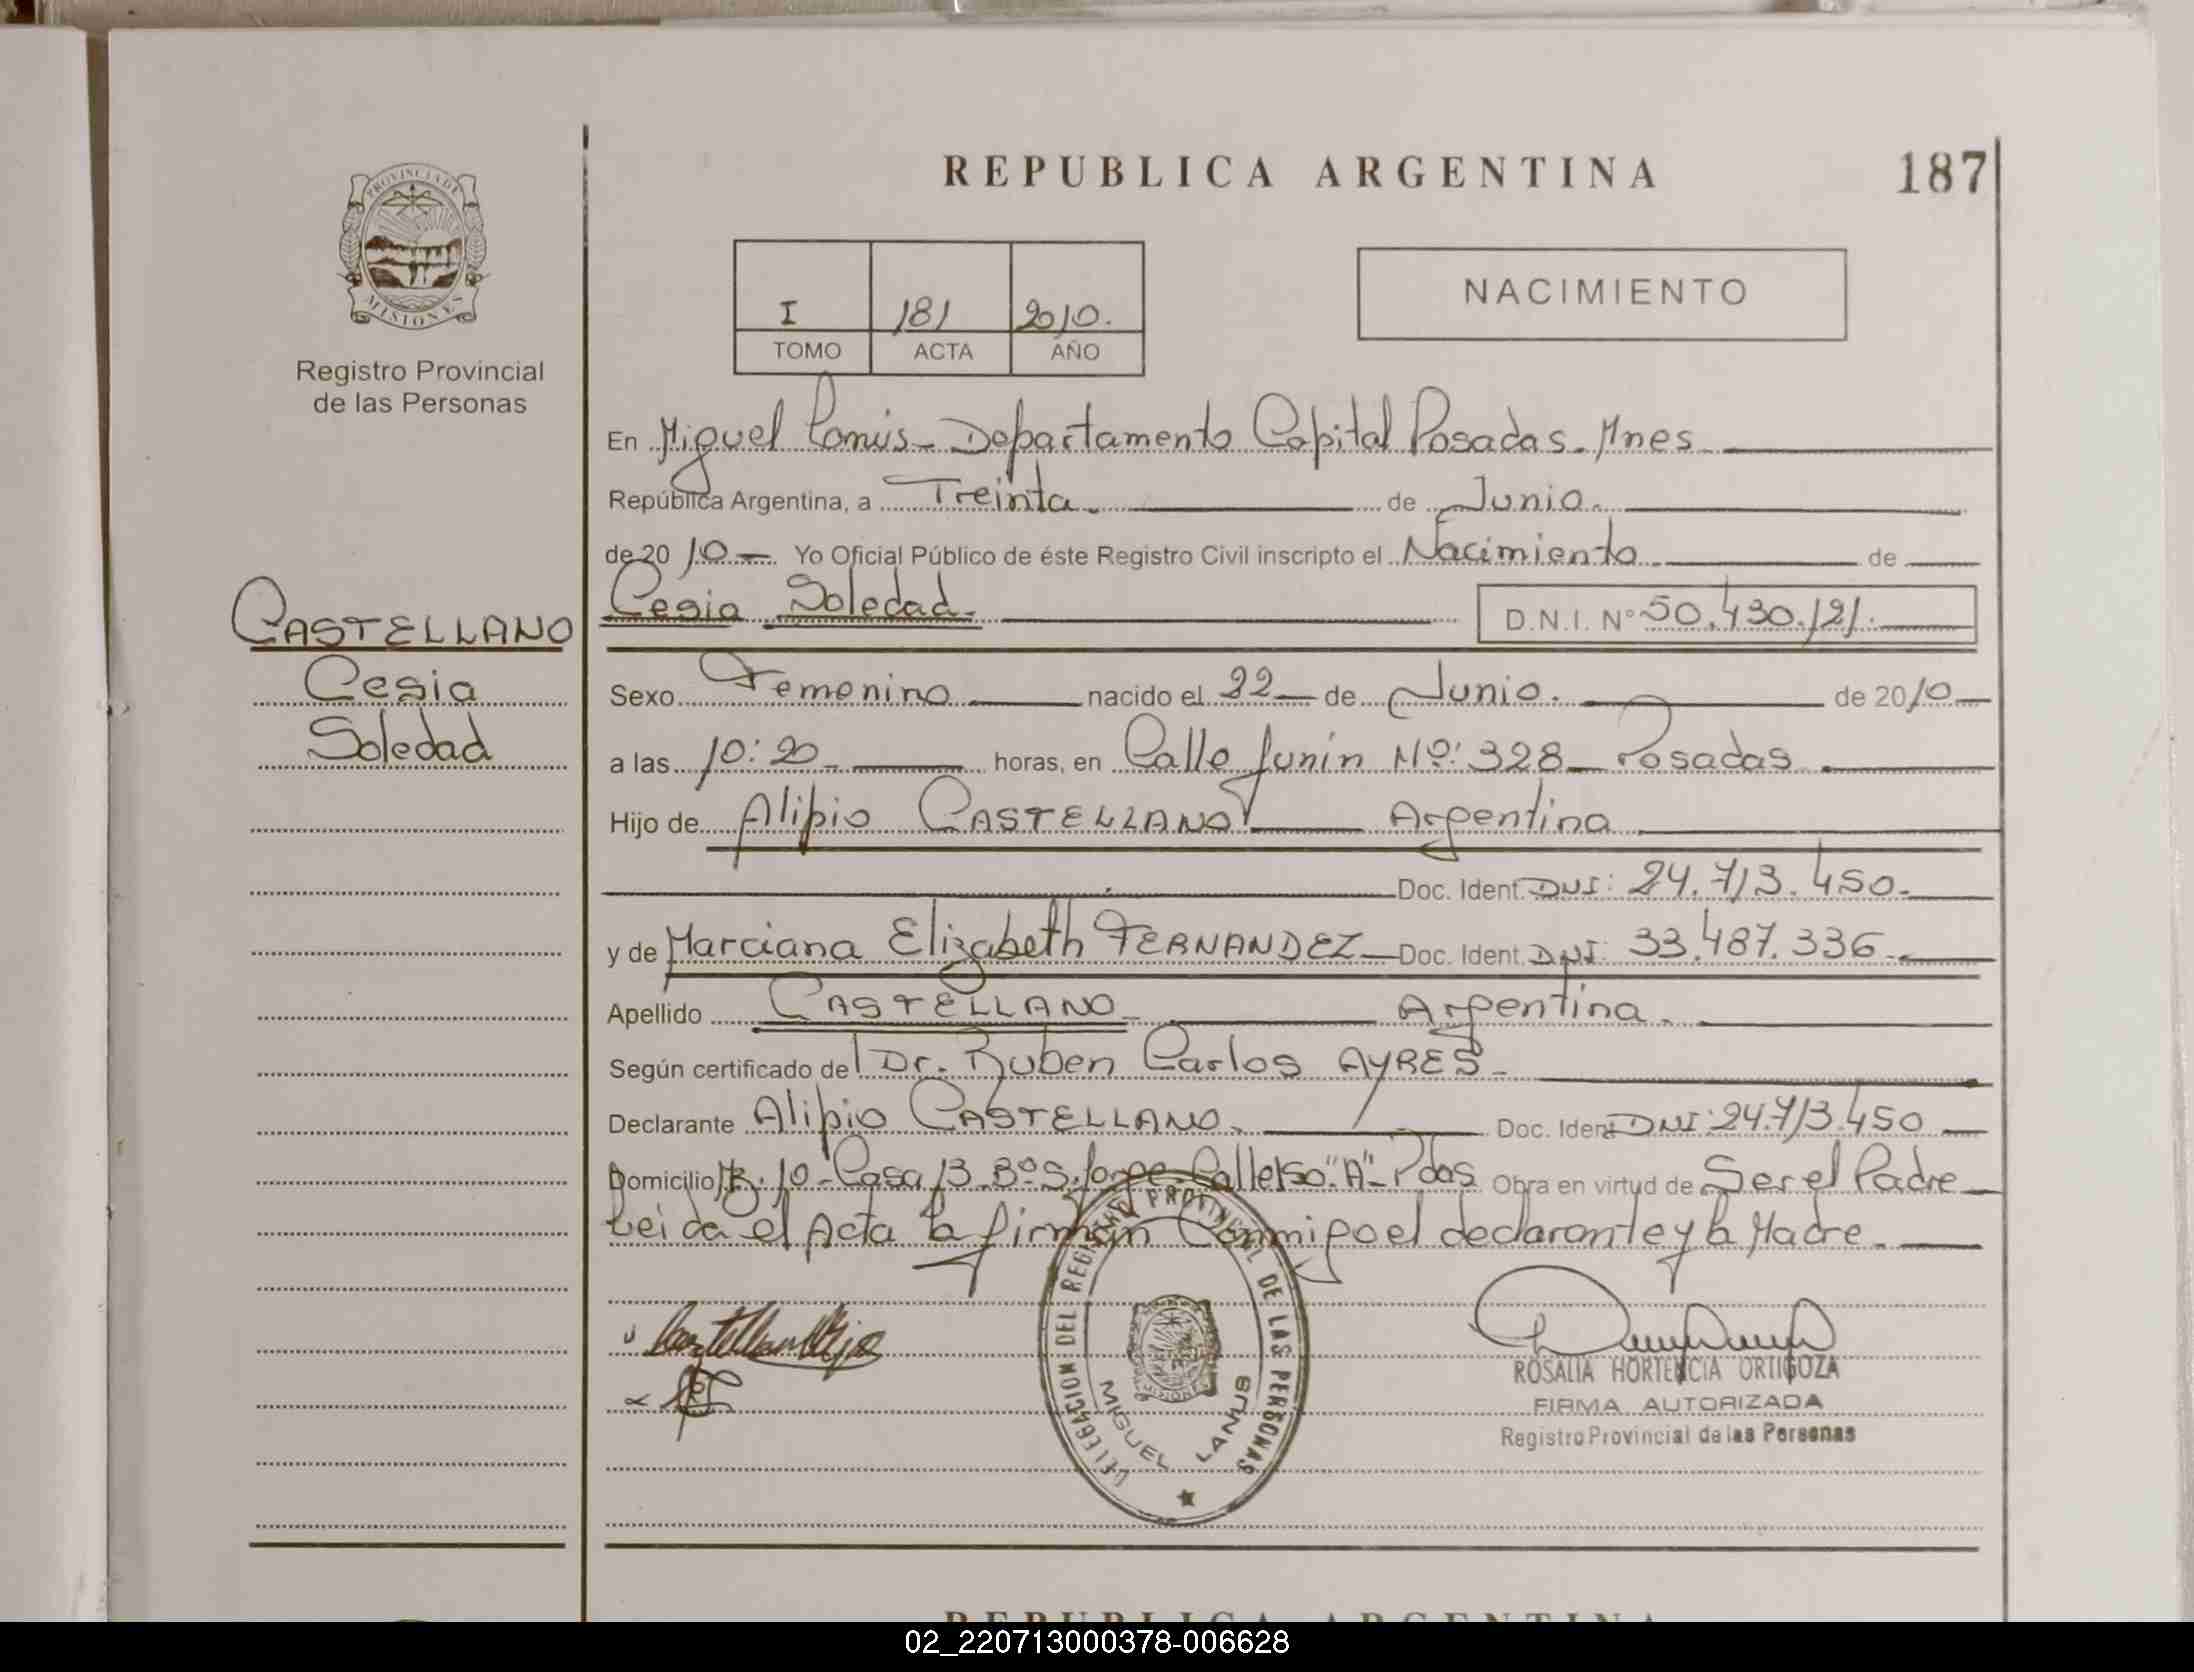 REPUBLICA ARGENTINA
187
PROVINCIA DE
MISIONES
Registro Provincial
de las Personas
I 181 2010.
TOMO ACTA AÑO
NACIMIENTO
En Miguel Lanús - Departamento Capital Posadas - Mnes
República Argentina, a Treinta. de Junio.
de 2010 - Yo Oficial Público de éste Registro Civil inscripto el Nacimiento de
Cesia Soledad.
D.N.I. Nº 50.430.121.
CASTELLANO
Cesia
Soledad
Sexo Femenino nacido el 22 de Junio. de 2010
a las 10:20 horas, en Calle Junín Nº: 328 - Posadas
Hijo de Alipio CASTELLANO Argentina
Doc. Ident. DNI: 24.713.450.
y de Marciana Elizabeth FERNANDEZ Doc. Ident. DNI: 33.487.336.
Apellido CASTELLANO - Argentina.
Según certificado del Dr. Ruben Carlos AYRES -
Declarante Alipio CASTELLANO. Doc. Ident DNI: 24.713.450
Domicilio Mz. 10 - Casa 13. Bº S. Jorge - Calle 150 "A" - Pdas Obra en virtud de Ser el Padre
Leida el Acta la firman Conmigo el declarante y la Madre.
DELEGACION DEL REGISTRO PROVINCIAL DE LAS PERSONAS
MIGUEL LANUS
ROSALIA HORTENCIA ORTIGOZA
FIRMA AUTORIZADA
Registro Provincial de las Personas
REPUBLICA ARGENTINA
02_220713000378-006628